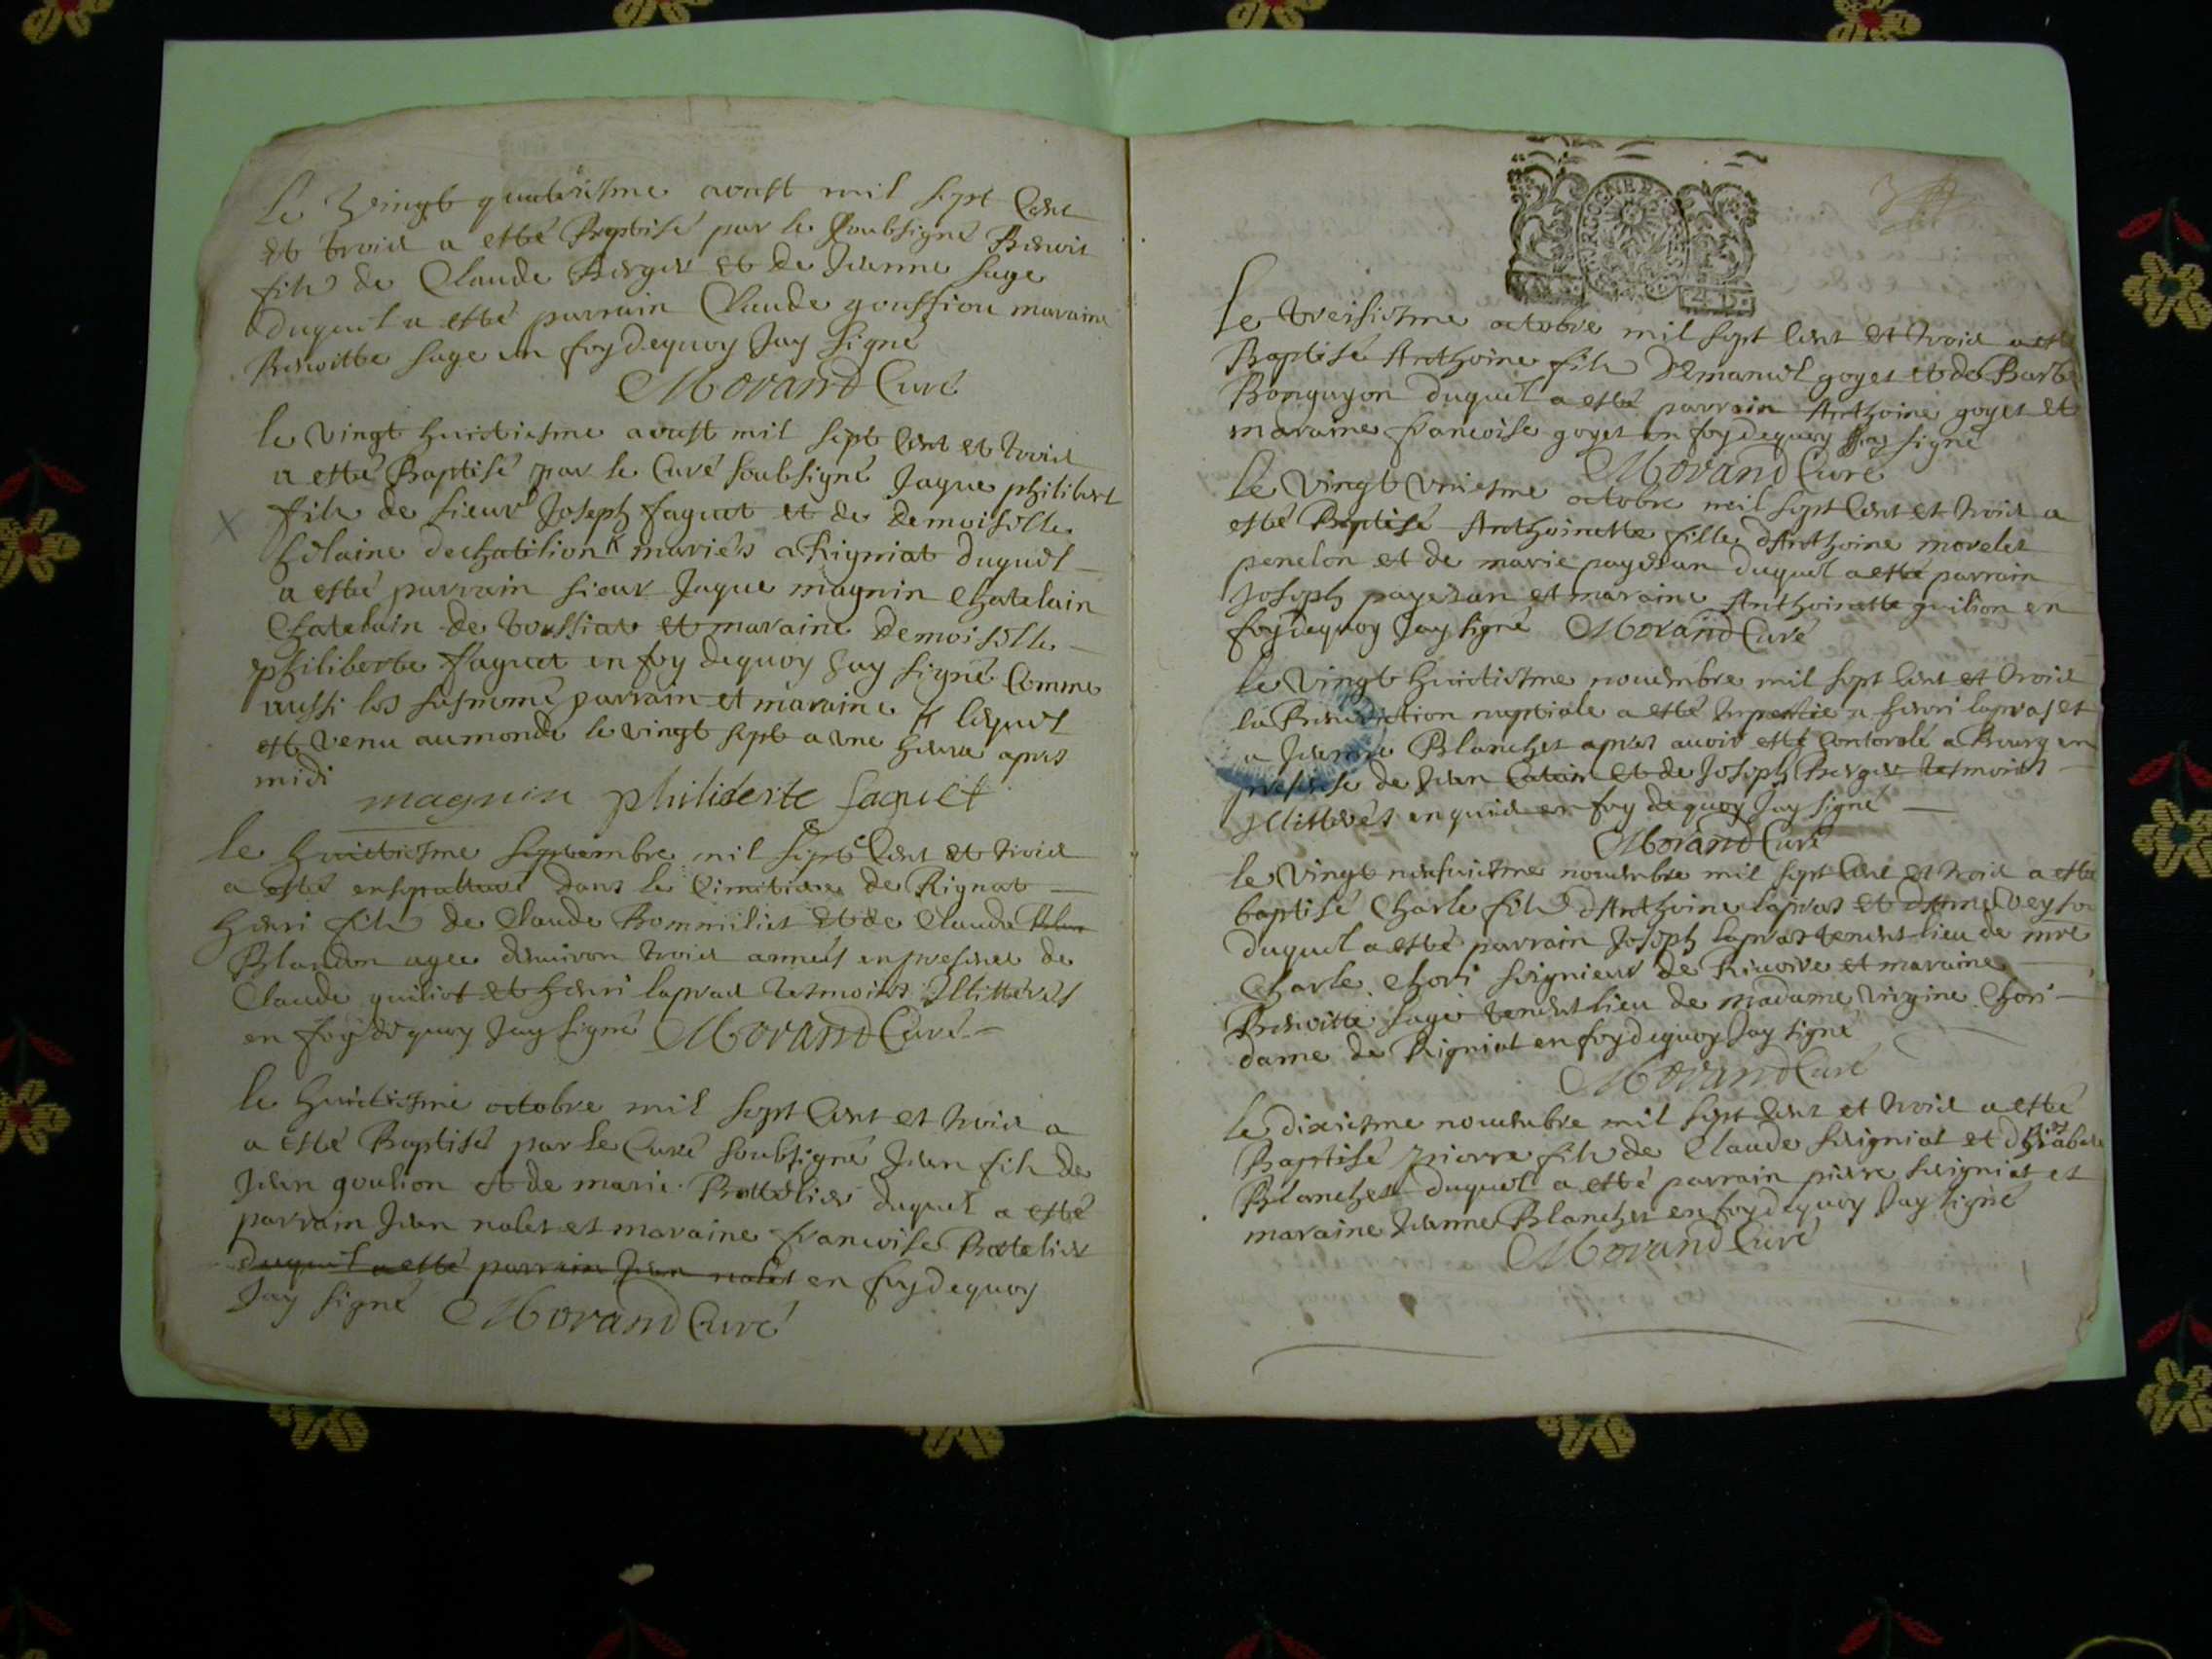 Le Vingt quatriesme aoust mil sept Cent
et trois a esté Baptisé par le soubsigné Benoit
fils de Claude Berger et de Jeanne sage
duquel a esté parrain Claude goussion maraine
Benoitte sage en foy dequoy Jay signé
Morand Curé
le vingt huictiesme aoust mil sept Cent et trois
a esté Baptisé par le Curé soubsigné Jaque philibert
fils de sieur Joseph faguet et de demoiselle
helaine dechatilion mariés a Rigniat duquel
a esté parrain sieur Jaque magnin Chatelain
Chatelain de tossiat et maraine demoiselle
philiberte faguet en foy dequoy Jay signé Comme
aussi les susnomé parrain et maraine lequel
est venu au monde le vingt sept a une heure apres
midi
magnin philiberte faguet
le huictiesme septembre mil sept Cent et trois
a esté ensepulturé dans le Cimitiere de Rignat
henri fils de Claude Bommilict et de Claude
Blandon agee denviron trois annees en presence de
Claude guiliot et henri lapras tesmoins Illitterés
en foy de quoy Jay signé Morand Curé
le huictiesme octobre mil sept Cent et trois a
a esté Baptisé par le Curé soubsigné Jean fils de
Jean goulion et de marie Battelier duquel a esté
parrain Jean nalet et maraine francoise Batelier
duquel a esté parrain Jean nalet en foy dequoy
Jay signé Morand Curé
BURGOGNE
Le treisiesme octobre mil sept Cent et trois a esté
Baptisé Anthoine fils d'Emanuel goyet et de Barbe
Bonguyon duquel a esté parrain Anthoine goyet et
maraine francoise goyet en foy dequoy Jay signé
Morand Curé
le Vingt Uniesme octobre mil sept Cent et trois a
esté Baptisé Anthoinette fille d'Anthoine morelet
penelon et de marie payesan duquel a esté parrain
Joseph payesan et maraine Anthoinette guilion en
foy dequoy Jay signé Morand Curé
le Vingt huictiesme novembre mil sept Cent et trois
la Benediction nuptiale a esté Impartie a henri lapras et
a Jeanne Blanchet apres avoir esté Controlé a Bourg en
presence de Jean Catain et de Joseph Berger tesmoins
Illitterés enquis en foy de quoy Jay signé
Morand Curé
le Vingt neufuiesme novembre mil sept Cent et trois a esté
baptisé Charle fils d'Anthoine lapras et
duquel a esté parrain Joseph lapras tenent lieu de mre
Charle Chori seignieur de et maraine
Benoitte sage tenent lieu de madame Virgine Chori
dame de Rigniat en foy dequoy Jay signé
Morand Curé
le dixiesme novembre mil sept Cent et trois a esté
Baptisé pierre fils de Claude serigniat et
Blanchet duquel a esté parrain pierre serigniat et
maraine Jeanne Blanchet en foy dequoy Jay signé
Morand Curé